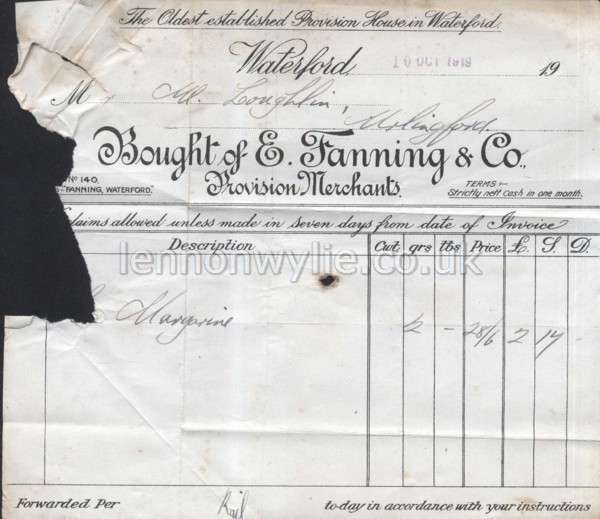 The Oldest established Provision House in Waterford.
Waterford, 10 OCT 1919 19
M M. Loughlin,
Urlingford.
Bought of E. Fanning & Co.,
No 140.
"FANNING, WATERFORD."
Provision Merchants.
TERMS:-
Strictly nett Cash in one month.
claims allowed unless made in seven days from date of Invoice
Description Cwt qrs lbs Price £. S. D.
lennonwylie.co.uk
Margarine 2 - 28/6 2 17 -
Forwarded Per Rail to-day in accordance with your instructions